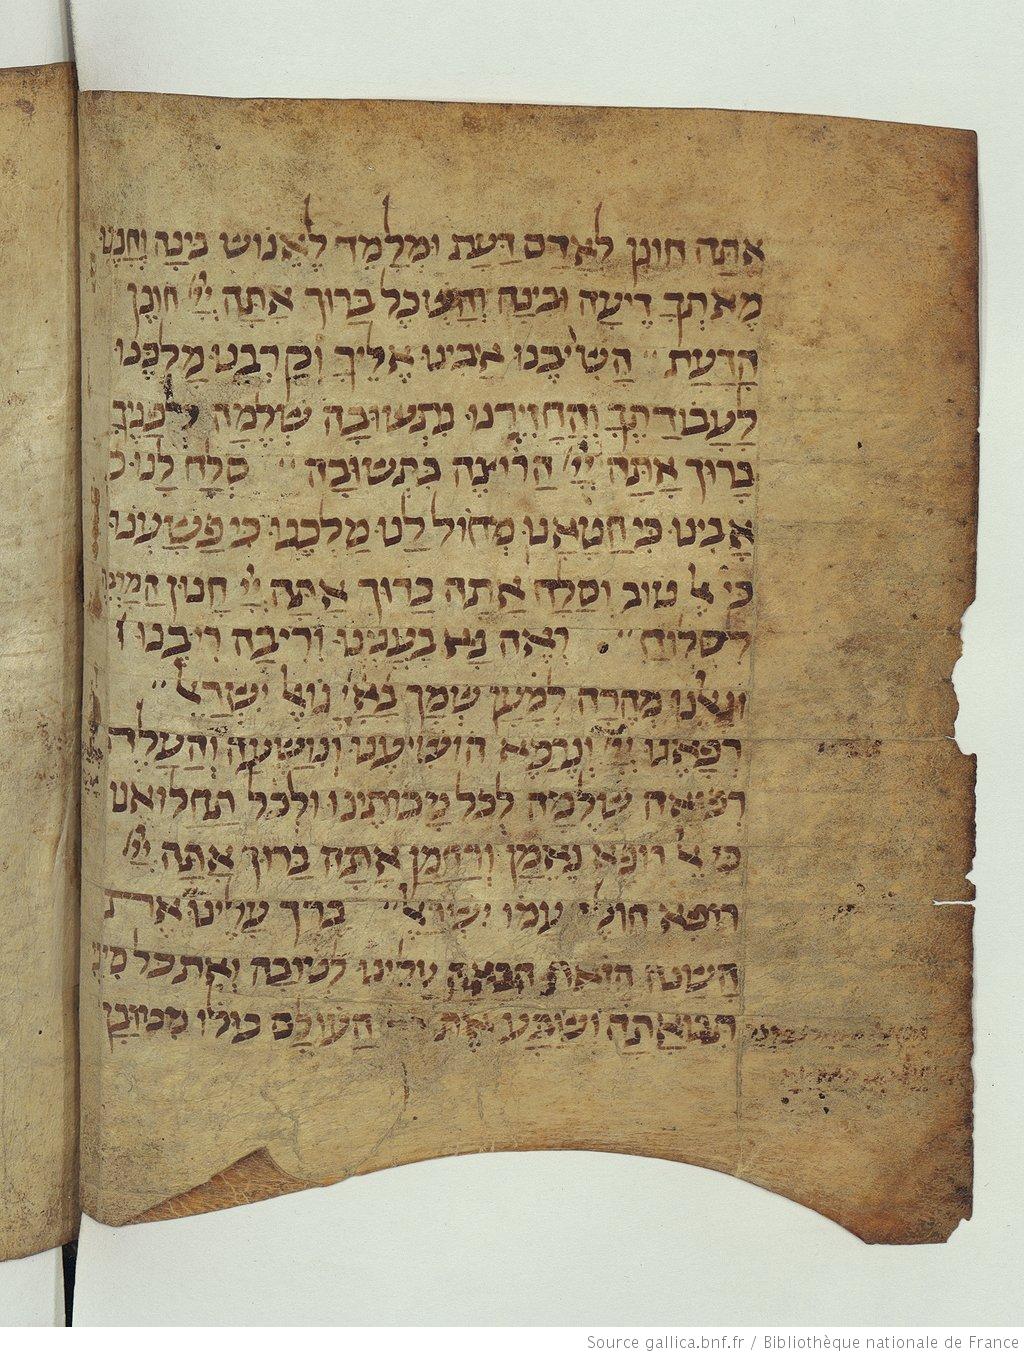 אַתָּה חוֹנֵן לְאָדָם דַּעַת וּמְלַמֵּד לֶאֱנוֹשׁ בִּינָה וְחָנֵּנוּ
מֵאִתְּךָ דֵּיעָה וּבִינָה וְהַשְׂכֵּל בָּרוּךְ אַתָּה יְיָ חוֹנֵן
הַדָּעַת הֲשִׁיבֵנוּ אָבִינוּ אֵלֶיךָ וְקָרְבֵנוּ מַלְכֵּנוּ
לַעֲבוֹדָתֶךָ וְהַחֲזִירֵנוּ בִּתְשׁוּבָה שְׁלֵמָה לְפָנֶיךָ
בָּרוּךְ אַתָּה יְיָ הָרוֹצֶה בִּתְשׁוּבָה סְלַח לָנוּ
אָבִינוּ כִּי חָטָאנוּ מְחוֹל לָנוּ מַלְכֵּנוּ כִּי פָשָׁעְנוּ
כִּי אֵל טוֹב וְסַלָּח אַתָּה בָּרוּךְ אַתָּה יְיָ חַנּוּן הַמַּרְבֶּה
לִסְלוֹחַ רְאֵה נָא בְעָנְיֵנוּ וְרִיבָה רִיבֵנוּ
וּגְאָלֵנוּ מְהֵרָה לְמַעַן שְׁמֶךָ בָּאַ֝יְיָ גּוֹאֵל יִשְׂרָאֵל
רְפָאֵנוּ יְיָ וְנֵרָפֵא הוֹשִׁיעֵנוּ וְנִוָּשֵׁעָה וְהַעֲלֵה
רְפוּאָה שְׁלֵמָה לְכָל מַכּוֹתֵינוּ וּלְכָל תַּחֲלוּאֵנוּ
כִּי אֵל רוֹפֵא נֶאֱמָן וְרַחֲמָן אַתָּה בָּרוּךְ אַתָּה יְיָ
רוֹפֵא חוֹלֵי עַמּוֹ יִשְׂרָאֵל בָּרֵךְ עָלֵינוּ אֶת
הַשָּׁנָה הַזֹּאת הַבָּאָה עָלֵינוּ לְטוֹבָה וְאֶת כָּל מִינֵי
תְּבוּאָתָהּ וְשַׂבַּע אֶת הָעוֹלָם כּוּלּוֹ מִטּוּבָךְ
Source gallica.bnf.fr / Bibliothèque nationale de France